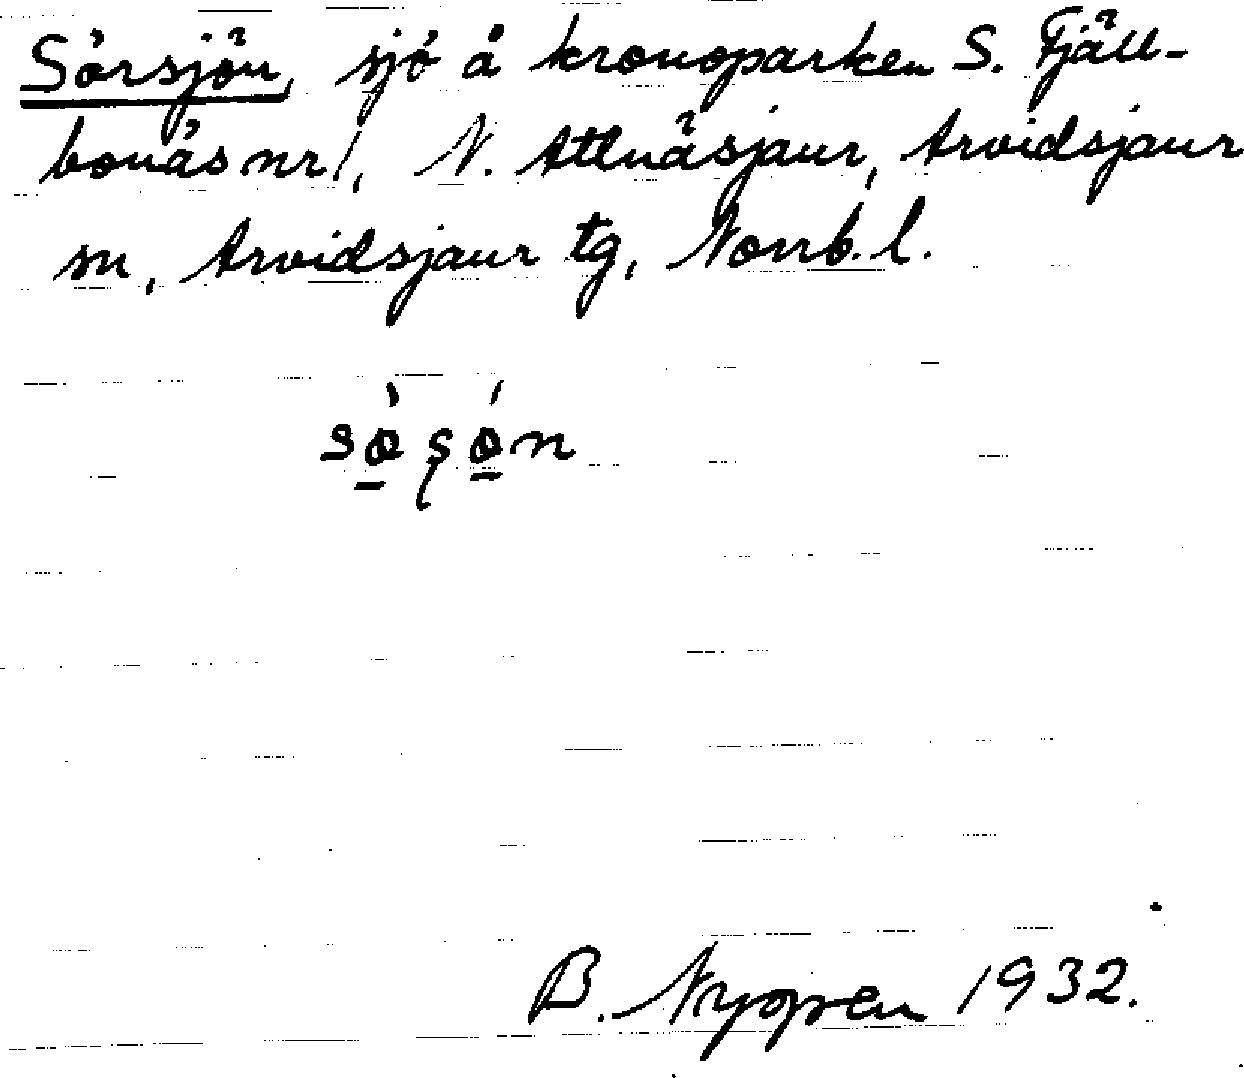 Sörsjön, sjö å kronoparken S. Fjäll-
bonäs nr 1, N. Attnäsjaur, Arvidsjaur
sn, Arvidsjaur tg, Norrb. l.
sø̱̀ ʂǿ̱n
B. Nygren 1932.